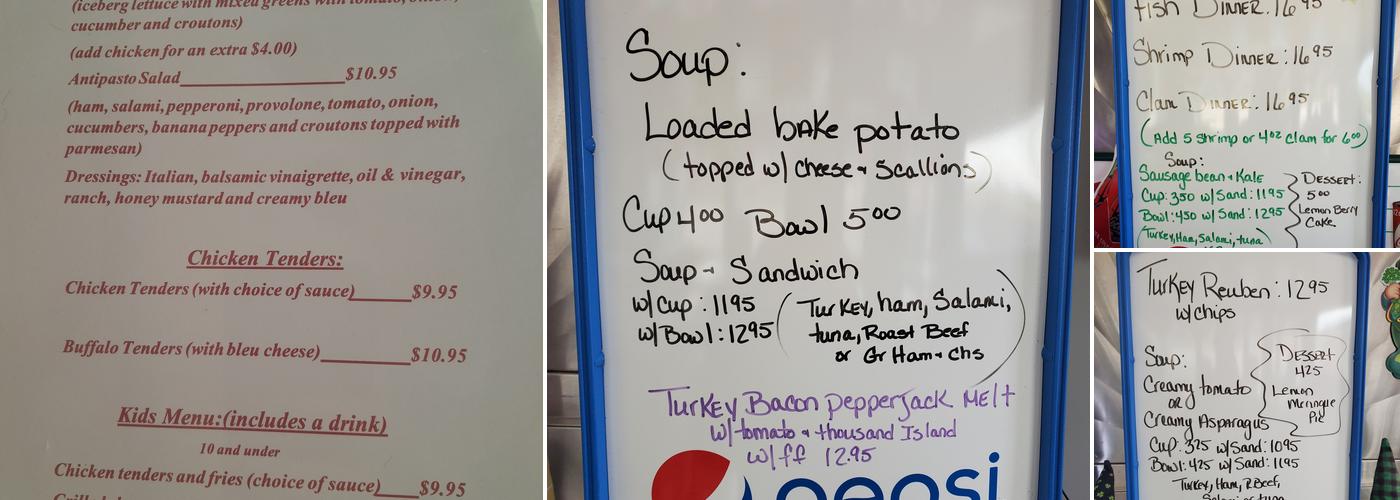 (iceberg lettuce with mixed greens with tomato, onion,
cucumber and croutons)
(add chicken for an extra $4.00)
Antipasto Salad $10.95
(ham, salami, pepperoni, provolone, tomato, onion,
cucumbers, banana peppers and croutons topped with
parmesan)
Dressings: Italian, balsamic vinaigrette, oil & vinegar,
ranch, honey mustard and creamy bleu
Chicken Tenders:
Chicken Tenders (with choice of sauce) $9.95
Buffalo Tenders (with bleu cheese) $10.95
Kids Menu:(includes a drink)
10 and under
Chicken tenders and fries (choice of sauce) $9.95
Soup:
Loaded bake potato
(topped w/ cheese + Scallions)
Cup 400 Bowl 500
Soup + Sandwich
w/Cup: 1195
w/Bowl: 1295
(Turkey, ham, Salami,
tuna, Roast Beef
or Gr Ham + chs)
Turkey Bacon pepperjack Melt
w/tomato + thousand Island
w/ff 12.95
pepsi
Fish Dinner: 1695
Shrimp Dinner: 1695
Clam Dinner: 1695
(Add 5 shrimp or 4oz clam for 600)
Soup:
Sausage bean + Kale
Cup: 350 w/Sand: 1195
Bowl: 450 w/Sand: 1295
(Turkey, Ham, Salami, tuna
Dessert:
500
Lemon Berry
Cake
Turkey Reuben: 1295
w/chips
Soup:
Creamy tomato
or
Creamy Asparagus
Cup: 325 w/Sand: 1095
Bowl: 425 w/Sand: 1195
Turkey, Ham, R.Beef,
Salami or tuna
Dessert
425
Lemon
Meringue
Pie